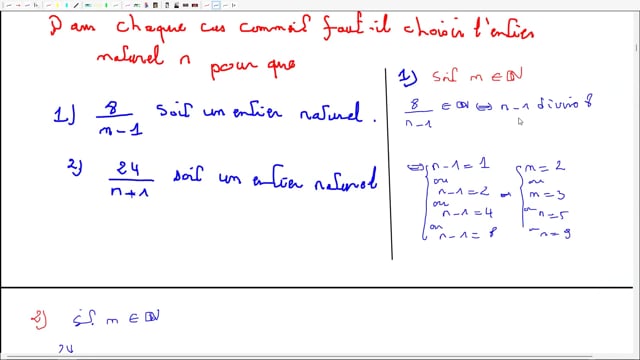 Dans chaque cas comment faut-il choisir l'entier
naturel n pour que
1) 8/(n-1) soit un entier naturel.
2) 24/(n+1) soit un entier naturel
1) Soit n ∈ ℕ
8/(n-1) ∈ ℕ ⇔ n-1 divise 8
⇔ { n-1 = 1 ⇔ { n = 2
ou ou
n-1 = 2 n = 3
ou ou
n-1 = 4 n = 5
ou ou
n-1 = 8 n = 9
2) soit n ∈ ℕ
24